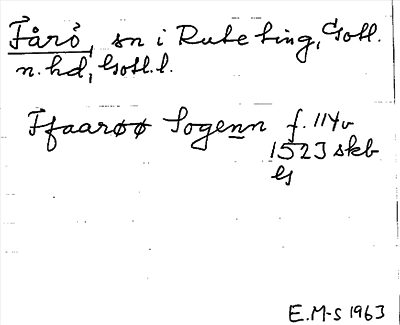 Fårö, sn i Rute ting, Gotl.
n. hd, Gotl. l.
Ffaarøø Sogenn f. 114v
1523 skb
Es
E. M-s 1963